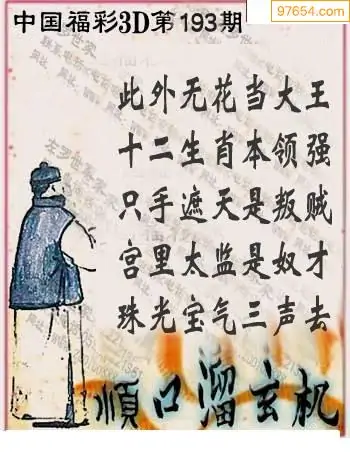 97654.com
中国福彩3D第193期
此外无花当大王
十二生肖本领强
只手遮天是叛贼
宫里太监是奴才
珠光宝气三声去
順口溜玄机